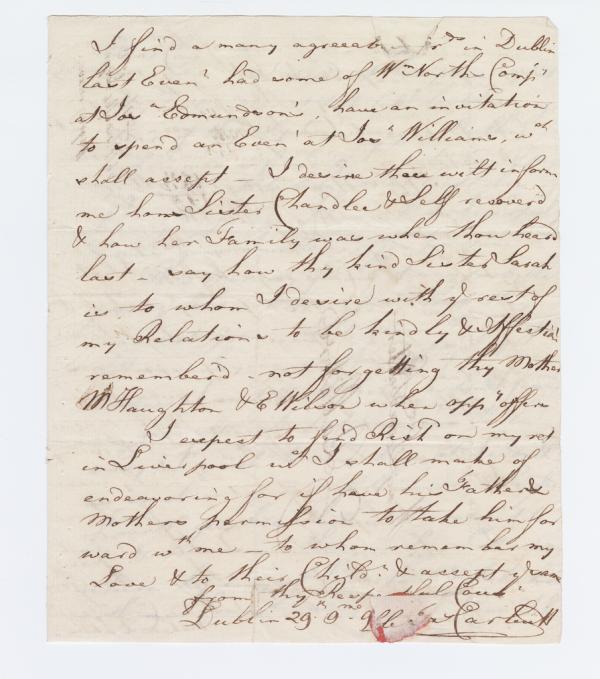 I find a many agreeab in Dublin
last Even' had some of Wm North Comp'
at Jos a Edmundson's, have an invitation
to spend an Even' at Jos a Williams, wch
shall accept - I desire thee wilt inform
me how Sister Chandlee & Self recoverd
& how her Family was when thou heard
last - say how thy kind Sister Sarah
is to whom I desire with ye rest of
my Relations to be kindly & Affectia'
rememberd - not forgetting thy Mother
M Haughton & E Wilson when opp'y offers
I expect to find on my ret
in Liverpool I shall make of
endeavoring for if have his Father &
Mothers permission to take him for
ward wth me - to whom remember my
Love & to their Child n & accept ye same
from thy Respectful Cous n
Dublin 29th 9 mo